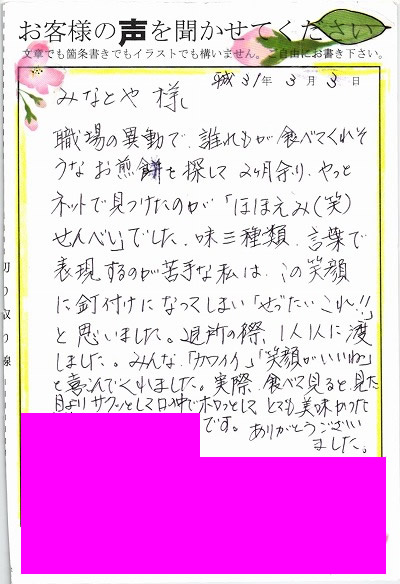 お客様の声を聞かせてください
文章でも箇条書きでもイラストでも構いません。ご自由にお書き下さい。
平成31年3月3日
みなとや様
職場の異動で、誰れもが食べてくれそ
うなお煎餅を探して2ヶ月余り、やっと
ネットで見つけたのが「ほほえみ(笑)
せんべい」でした。味三種類、言葉で
表現するのが苦手な私は、この笑顔
に釘付けになってしまい「ぜったいこれ!!」
と思いました。退所の際、1人1人に渡
しました。みんな「カワイイ」「笑顔がいいね」
と喜こんでくれました。実際、食べて見ると見た
目よりサクッとして口の中でホロッとして、とても美味かった
です。ありがとうござい
ました。
切り取り線